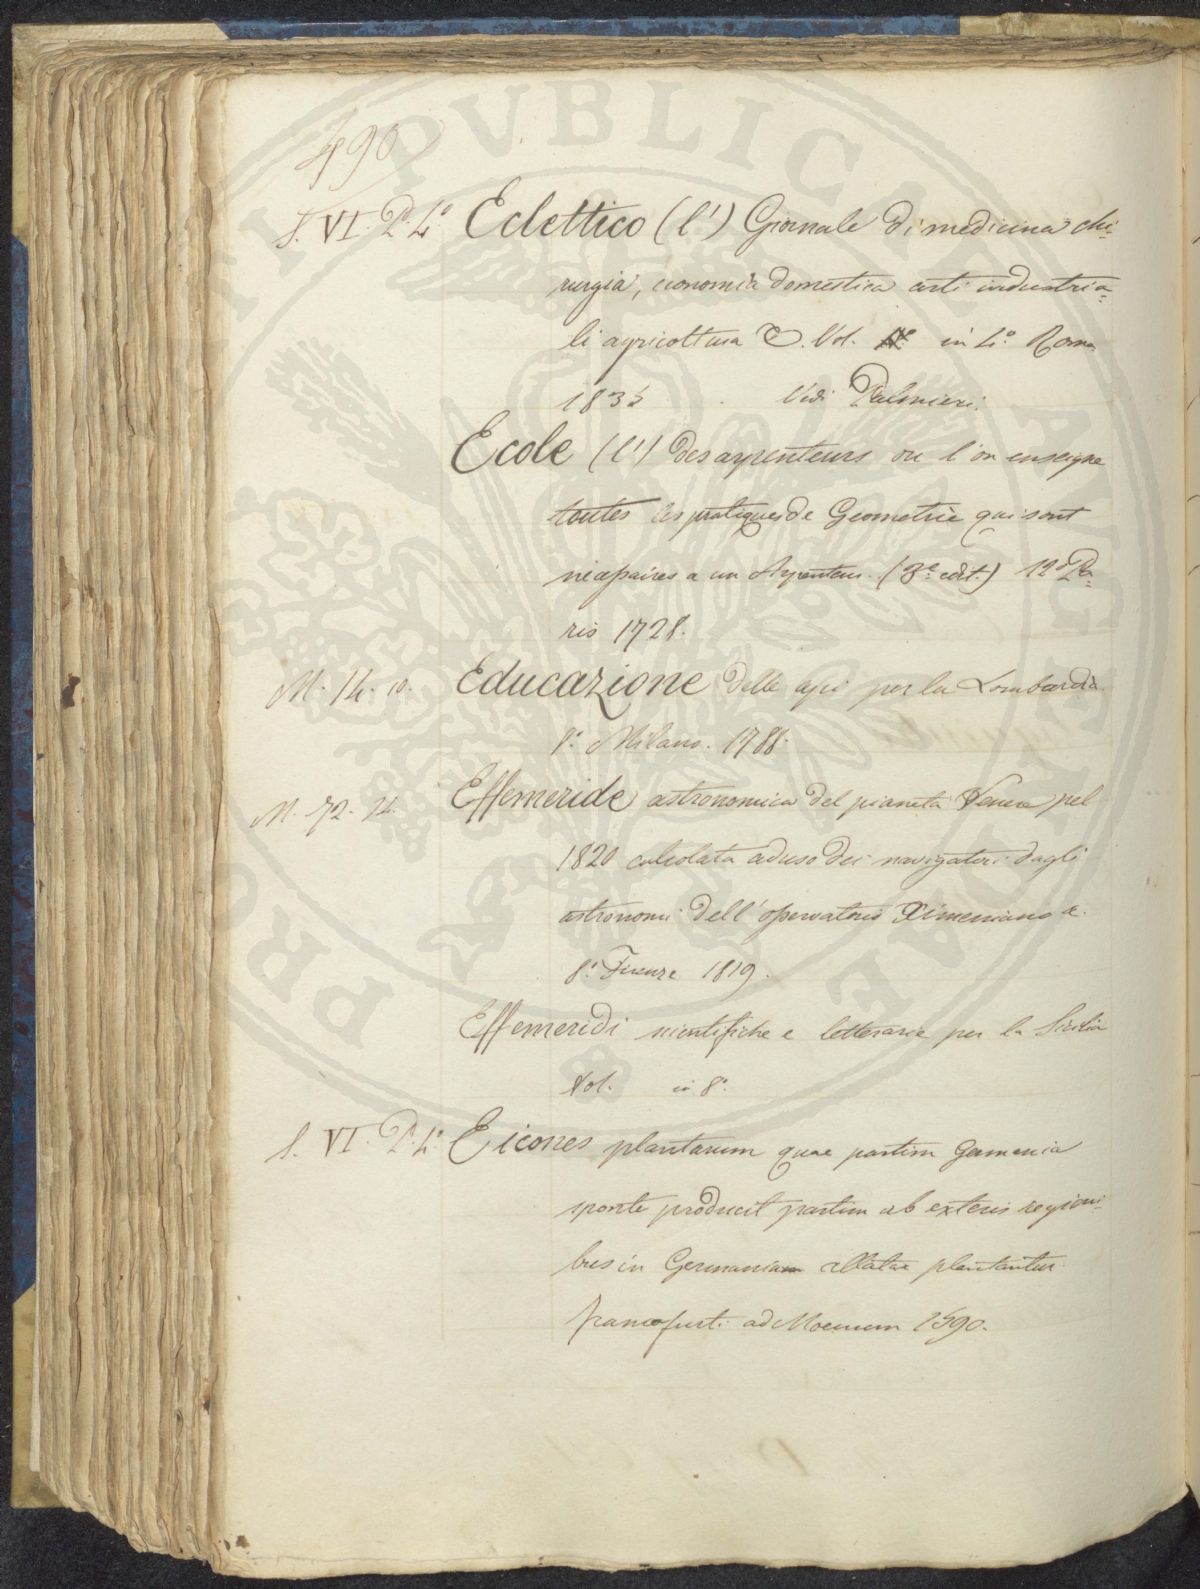 490
S. VI. P. 4.º Eclettico (l') Giornale di medicina chi-
rurgia, economia domestica arti industria-
li agricoltura &. Vol. in 4.º Roma
1835 Vidi Palmieri.
Ecole (l') des arpenteurs ou l'on enseigne
toutes les pratiques de Geometrie qui sont
necessaires a un Arpenteur. (3.e edit.) 12º Pa-
ris 1728.
M. 14. 10. Educazione delle api per la Lombardia
8.º Milano. 1788.
M. 72. 14. Effemeride astronomica del pianeta Venere pel
1820 calcolata ad uso dei navigatori dagli
astronomi dell'osservatorio Ximeniano a.
8.º Firenze 1819.
Effemeridi scientifiche e letterarie per la Sicilia
Vol. in 8.º
S. VI. P. 4.º Eicones plantarum quae partim Germania
sponte producit partim ab exteris regioni-
bus in Germaniam allatae plantantur
francofurti ad Moenum 1590.
PUBLICAE